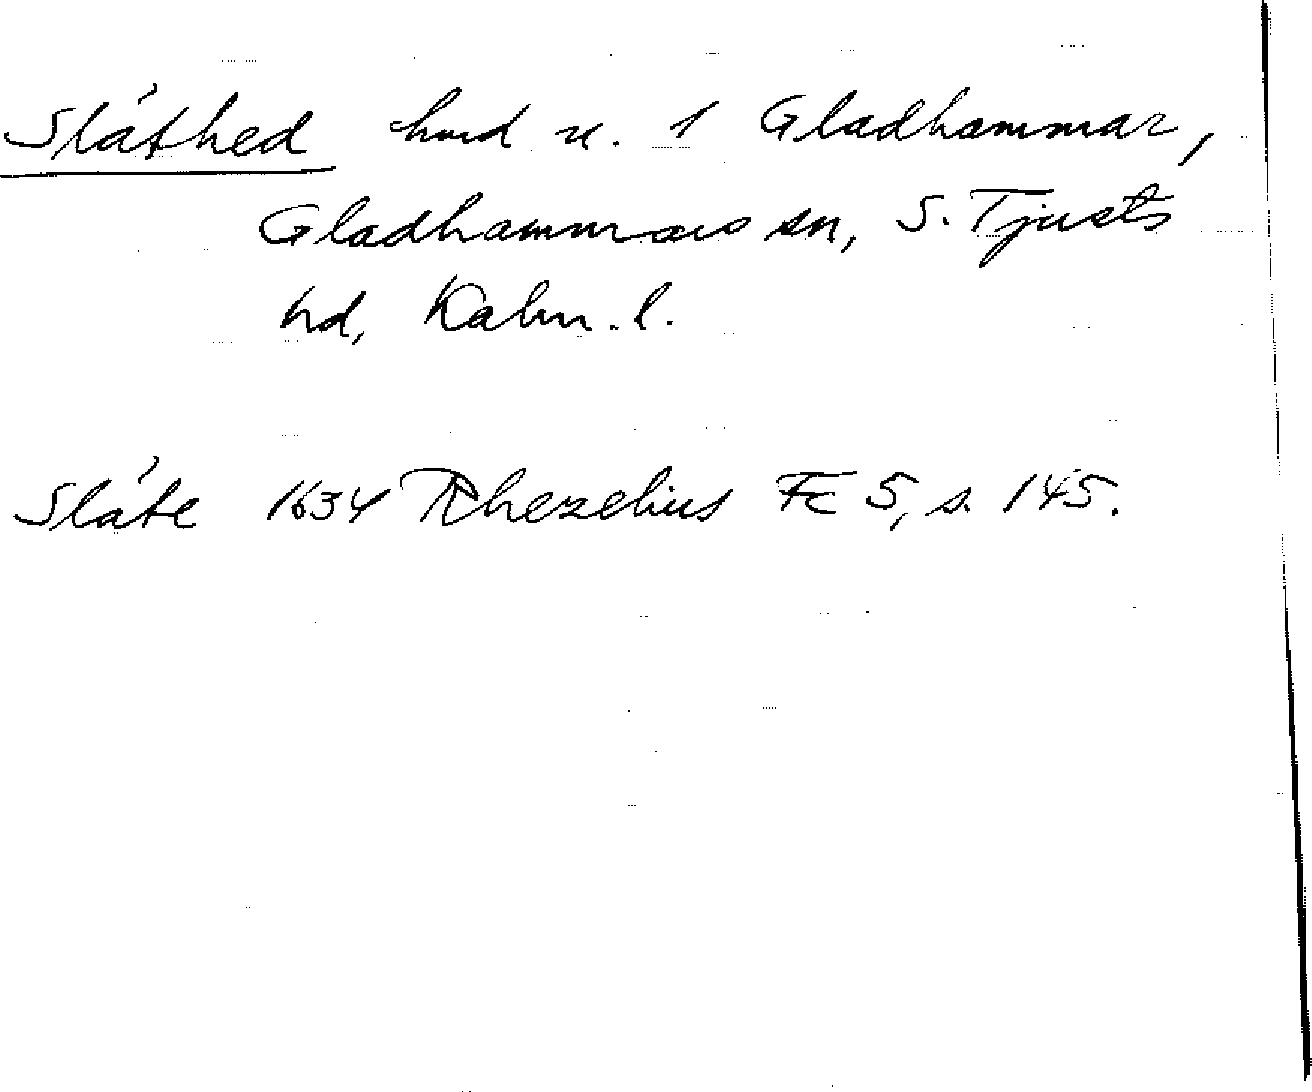 Slåthed hmd u. 1 Gladhammar,
Gladhammars sn, S. Tjusts
hd, Kalm. l.
Slåte 1634 Rhezelius Fc 5, s. 145.